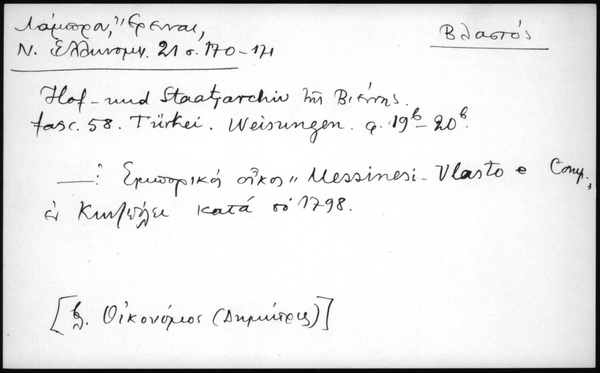 Λάμπρου, "Ἔρευναι,
Ν. Ἑλληνομν. 21 σ. 170-171
Βλαστός
Hof- und Staatsarchiv τῆς Βιέννης.
fasc. 58. Türkei. Weisungen. φ. 19β-20β.
—: Ἐμπορικός οἶκος "Messinesi-Vlasto e Comp.,
ἐν Κων/πόλει κατά τό 1798.
[β. Οἰκονόμος (Δημήτριος)]